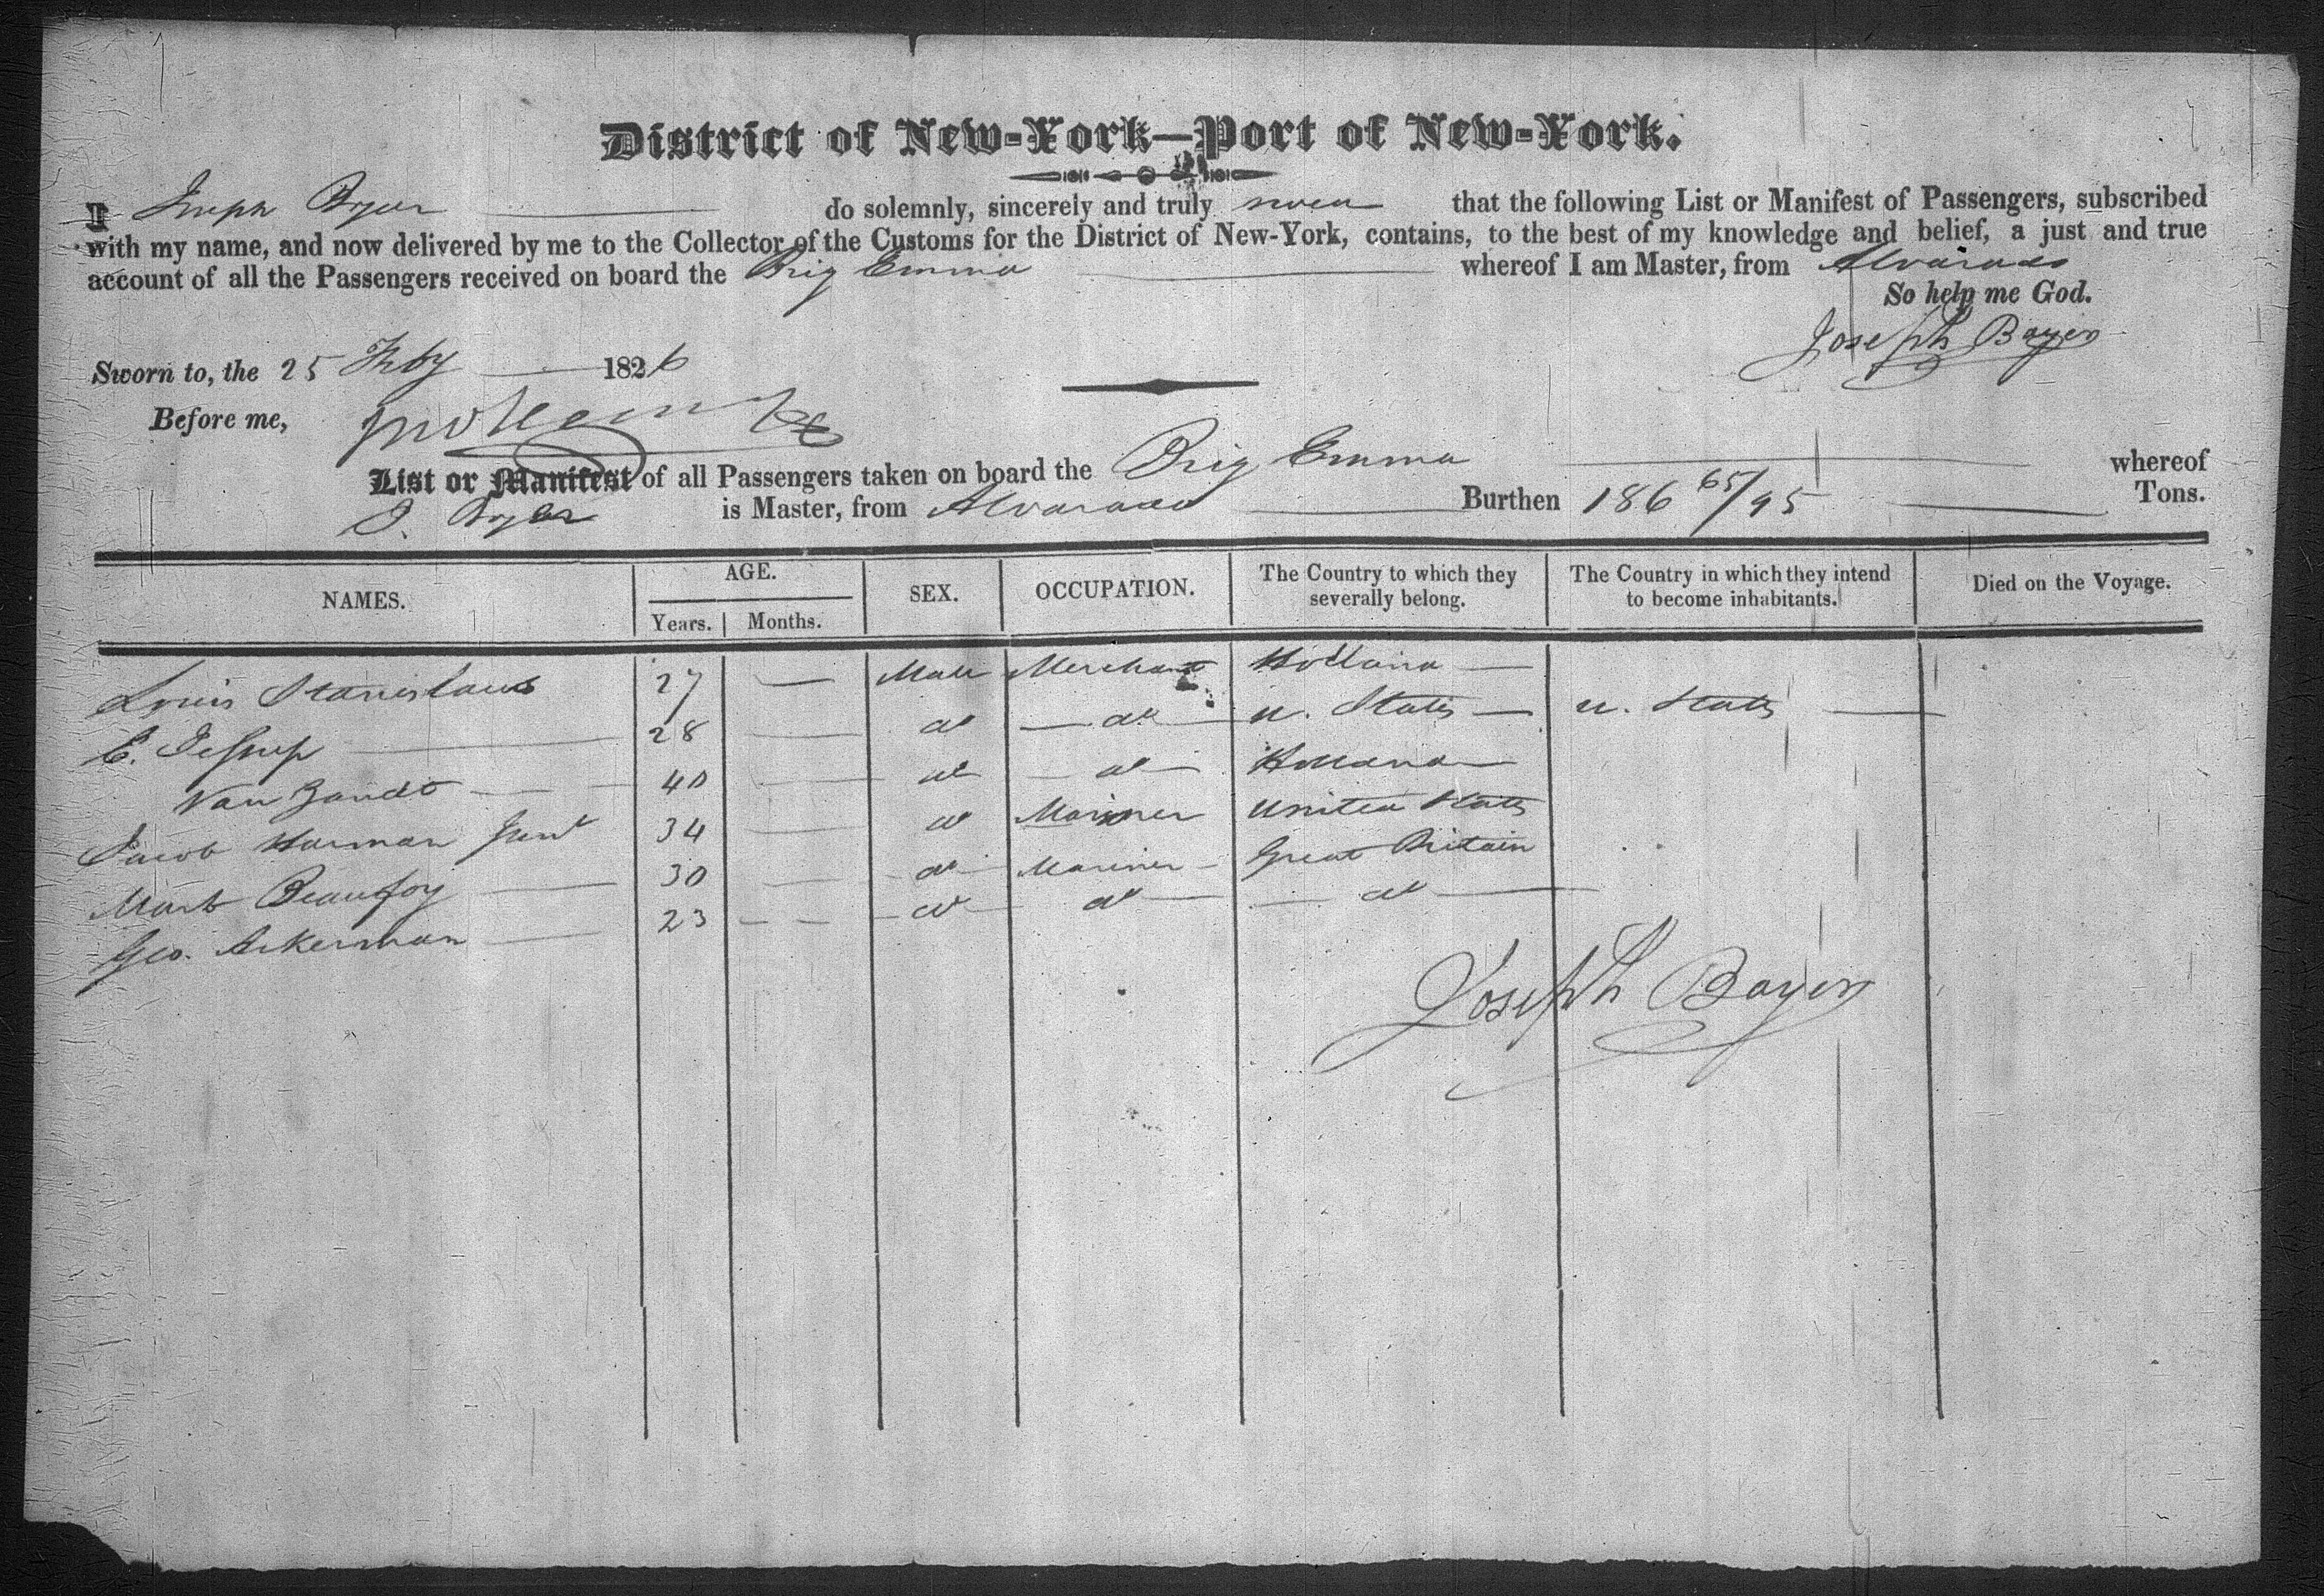 District of New-York—Port of New-York.
I Joseph Boyer do solemnly, sincerely and truly swear that the following List or Manifest of Passengers, subscribed
with my name, and now delivered by me to the Collector of the Customs for the District of New-York, contains, to the best of my knowledge and belief, a just and true
account of all the Passengers received on board the Brig Emma whereof I am Master, from Alvarado
So help me God.
Joseph Bayer
Sworn to, the 25 Feby 1826
Before me,
List or Manifest of all Passengers taken on board the Brig Emma whereof
J. Boyer is Master, from Alvarado Burthen 186 65/95 Tons.
NAMES. AGE. Years. Months. SEX. OCCUPATION. The Country to which they severally belong. The Country in which they intend to become inhabitants. Died on the Voyage.
Louis Stanislaus 27 — Male Merchant Holland —
C. Jessup 28 — do — do — U. States — U. States —
Van Zandt — 40 — do — do — Holland —
Jacob Harman Junr 34 — do Mariner United States
Mark Beaufoy — 30 — do Mariner — Great Britain
Geo. Ackerman — 23 — — do — do — — do —
Joseph Bayer